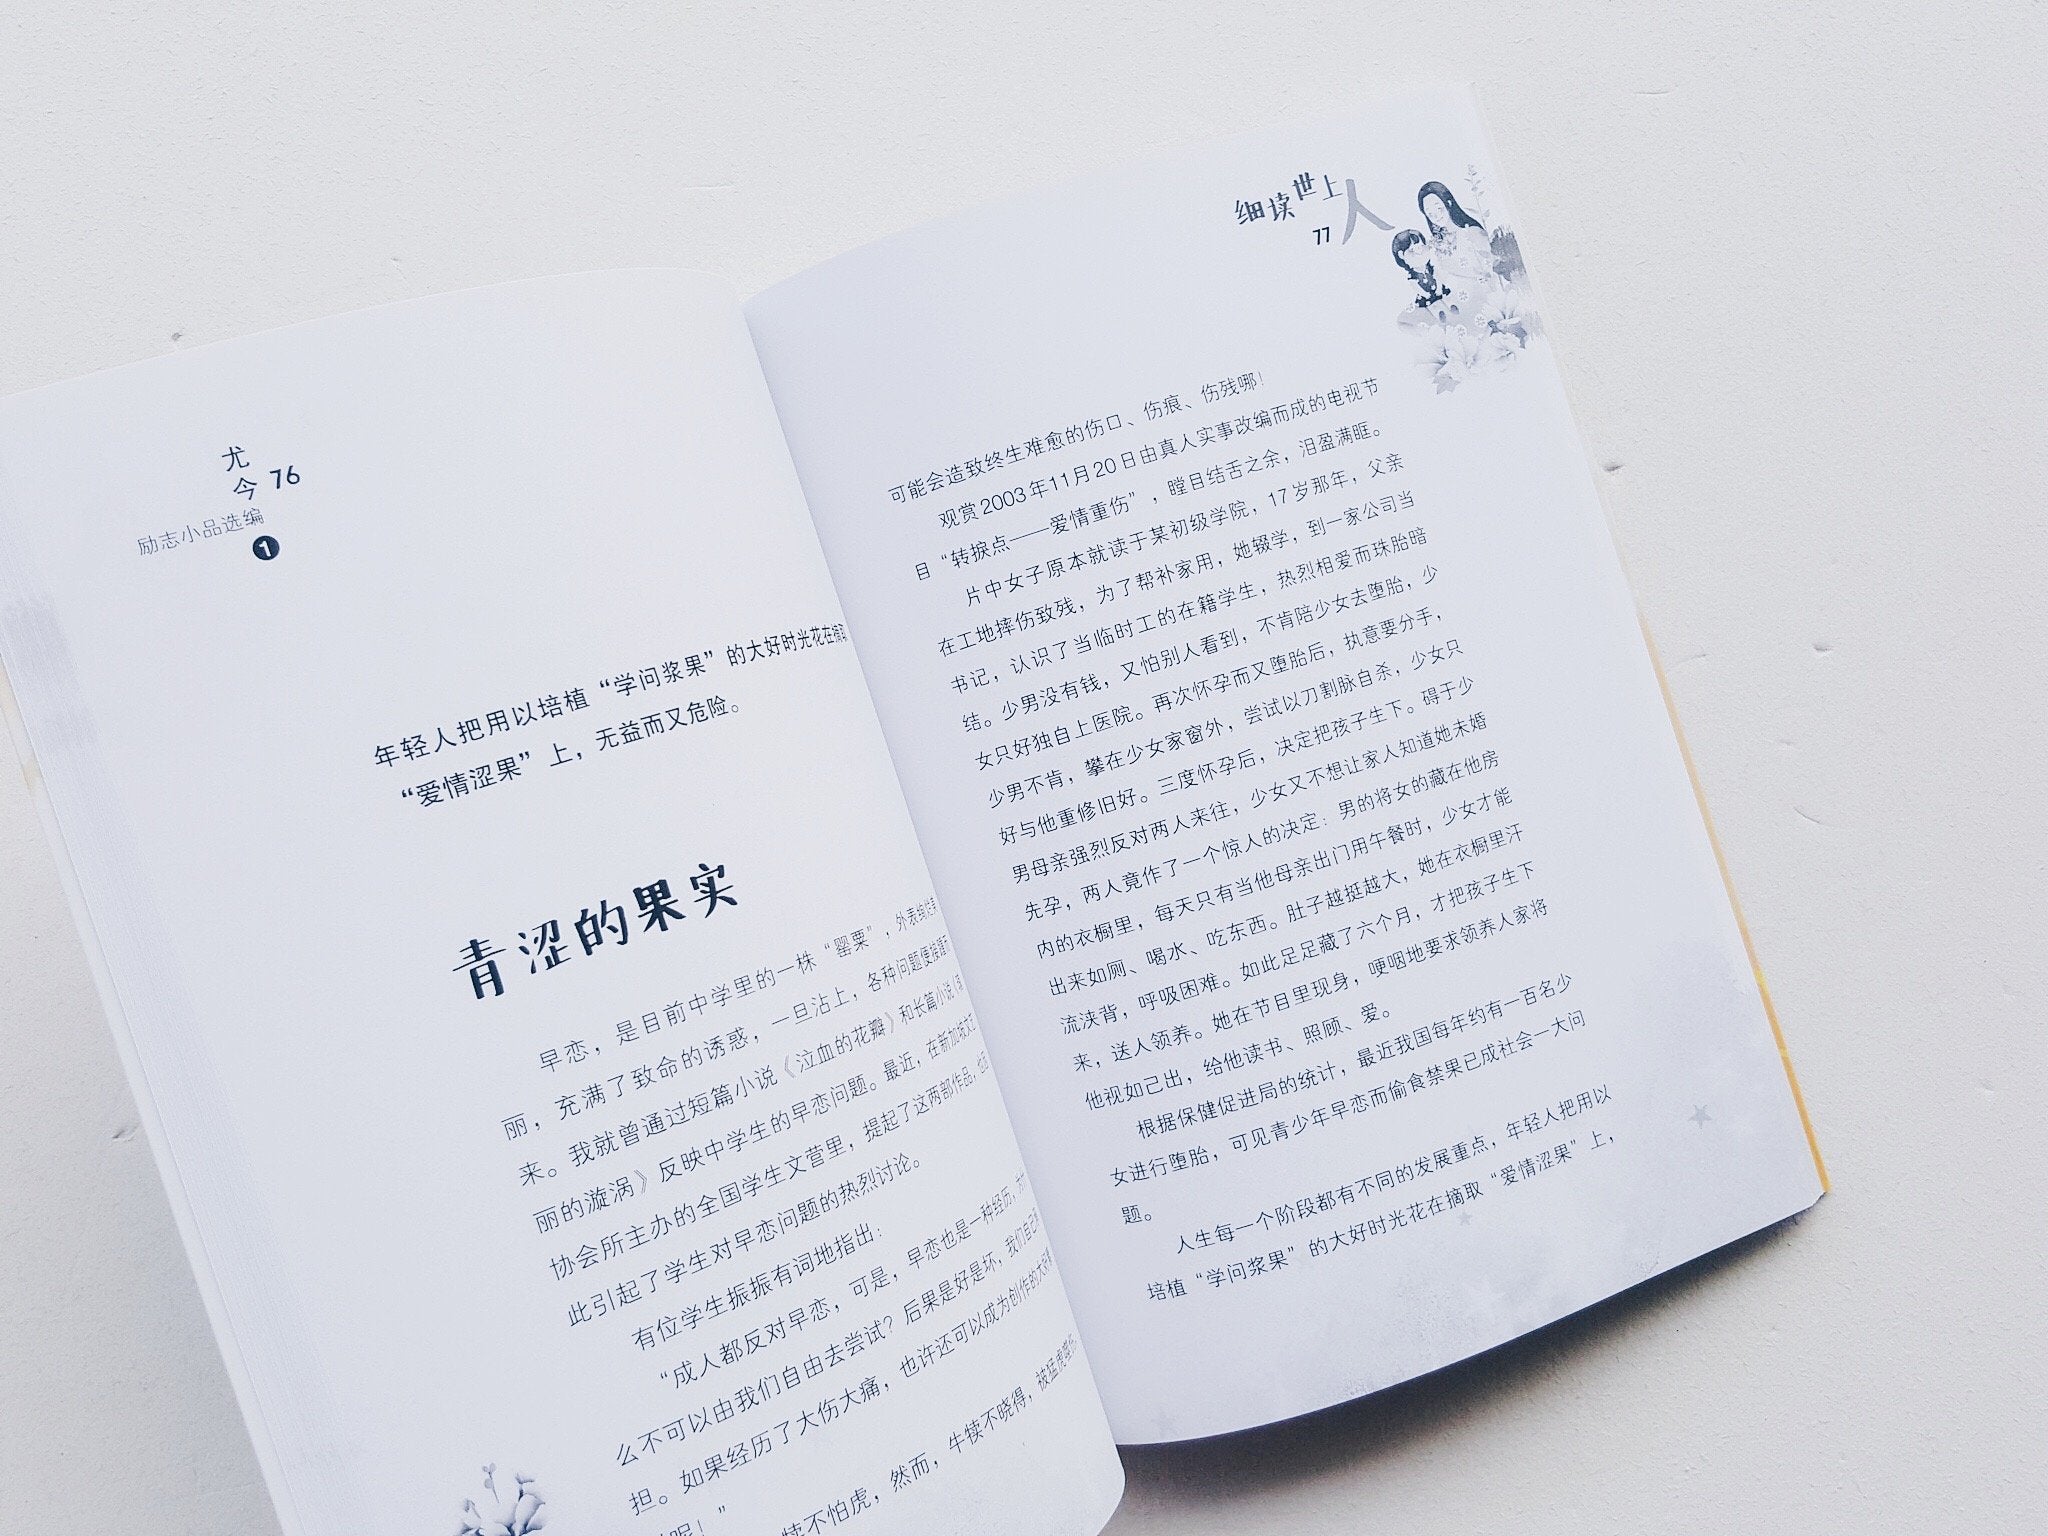 尤
今 76
励志小品选编
1
年轻人把用以培植“学问浆果”的大好时光花在摘取
“爱情涩果”上，无益而又危险。
青涩的果实
早恋，是目前中学里的一株“罂粟”，外表绚
丽，充满了致命的诱惑，一旦沾上，各种问题便接踵而
来。我就曾通过短篇小说《泣血的花瓣》和长篇小说《
丽的漩涡》反映中学生的早恋问题。最近，在新加坡文艺
协会所主办的全国学生文营里，提起了这两部作品，
此引起了学生对早恋问题的热烈讨论。
有位学生振振有词地指出：
“成人都反对早恋，可是，早恋也是一种经历，为什
么不可以由我们自由去尝试？后果是好是坏，我们自己
担。如果经历了大伤大痛，也许还可以成为创作的大好
呢！”
犊不怕虎，然而，牛犊不晓得，被猛虎噬
细读世上人
77
可能会造致终生难愈的伤口、伤痕、伤残哪！
观赏2003年11月20日由真人实事改编而成的电视节
目“转捩点——爱情重伤”，瞠目结舌之余，泪盈满眶。
片中女子原本就读于某初级学院，17岁那年，父亲
在工地摔伤致残，为了帮补家用，她辍学，到一家公司当
书记，认识了当临时工的在籍学生，热烈相爱而珠胎暗
结。少男没有钱，又怕别人看到，不肯陪少女去堕胎，少
女只好独自上医院。再次怀孕而又堕胎后，执意要分手，
少男不肯，攀在少女家窗外，尝试以刀割脉自杀，少女只
好与他重修旧好。三度怀孕后，决定把孩子生下。碍于少
男母亲强烈反对两人来往，少女又不想让家人知道她未婚
先孕，两人竟作了一个惊人的决定：男的将女的藏在他房
内的衣橱里，每天只有当他母亲出门用午餐时，少女才能
出来如厕、喝水、吃东西。肚子越挺越大，她在衣橱里汗
流浃背，呼吸困难。如此足足藏了六个月，才把孩子生下
来，送人领养。她在节目里现身，哽咽地要求领养人家将
他视如己出，给他读书、照顾、爱。
根据保健促进局的统计，最近我国每年约有一百名少
女进行堕胎，可见青少年早恋而偷食禁果已成社会一大问
题。
人生每一个阶段都有不同的发展重点，年轻人把用以
培植“学问浆果”的大好时光花在摘取“爱情涩果”上，